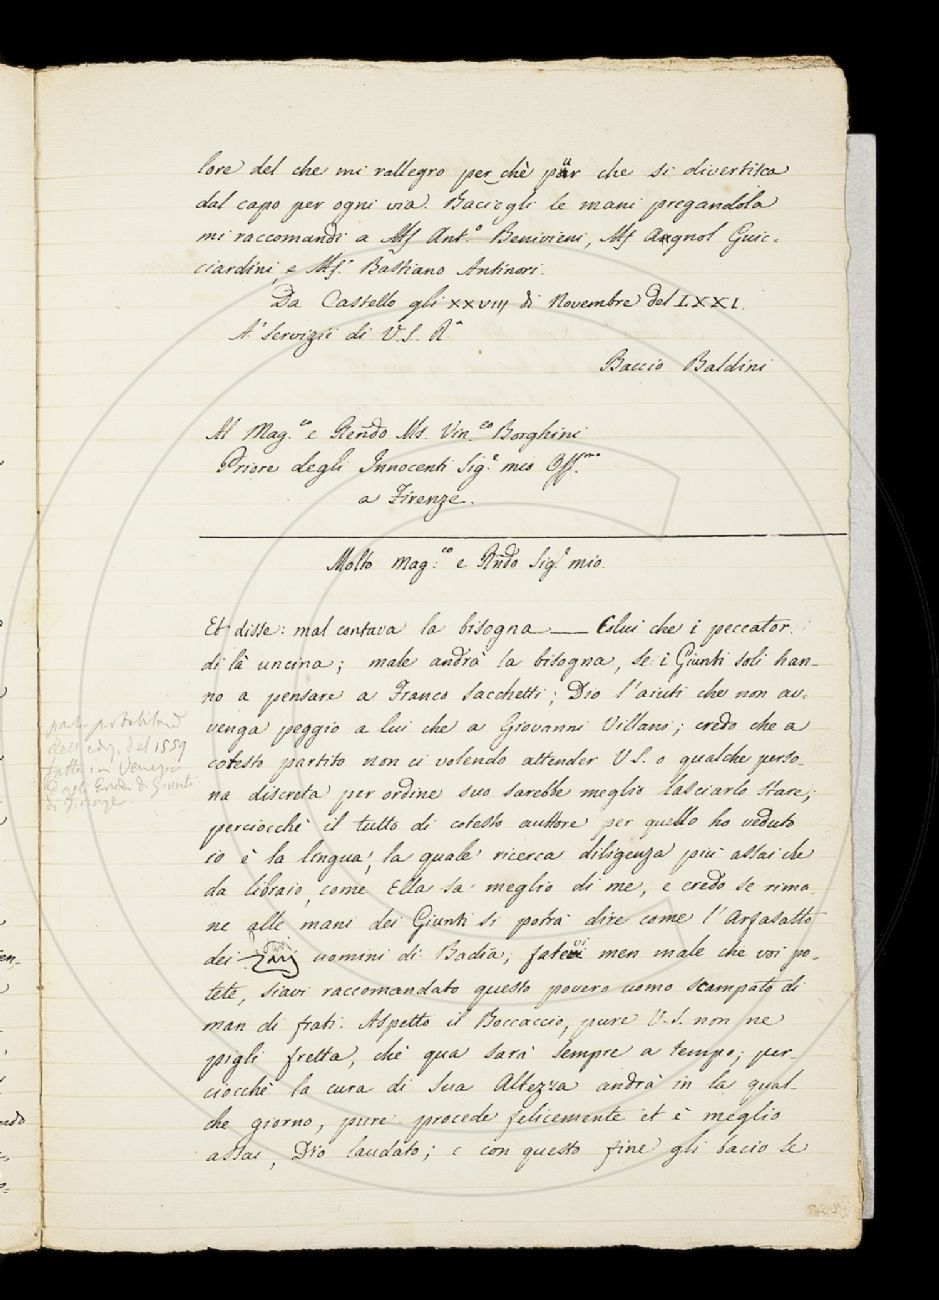 lore del che mi rallegro perchè pur che si divertisca
dal capo per ogni via. Baciogli le mani pregandola
mi raccomandi a Ms Ant.º Benivieni, Ms Agnol Guic-
ciardini, e Ms.r Bastiano Antinori.
Da Castello gli XXVIII di Novembre del LXXI.
A' Servizii di V.S. R.a
Baccio Baldini
Al Mag.co e Rendo Ms. Vin.co Borghini
Priore degli Innocenti Sig.r mio Oss.mo
a Firenze.
Molto mag.co e Rndo Sig.r mio.
Et disse: mal contava la bisogna — Colui che i peccator.
di là uncina; male andrà la bisogna, se i Giunti soli han-
no a pensare a Franco Sacchetti; Dio l'aiuti che non av-
venga peggio a lui che a Giovanni Villani; credo che a
cotesto partito non ci volendo attender V.S. o qualche perso-
na discreta per ordine suo sarebbe meglio lasciarlo stare;
perciocchè il tutto di cotesto auttore per quello ho veduto
io è la lingua, la quale ricerca diligenza più assai che
da libraio, come Ella sa meglio di me, e credo se rima-
ne alle mani dei Giunti si potrà dire come l'Arfasatto
dei uomini di Badia; fatevi men male che voi po-
tete, siavi raccomandato questo povero uomo scampato di
man di frati. Aspetto il Boccaccio, pure V.S. non ne
pigli fretta, chè qua sarà sempre a tempo; per-
ciocchè la cura di Sua Altezza andrà in la qual-
che giorno, pure procede felicemente et è meglio
assai, Dio laudato; e con questo fine gli bacio le
dell'ediz. del 1559
fatta in Venezia
dagli Eredi di Giunti
di Firenze